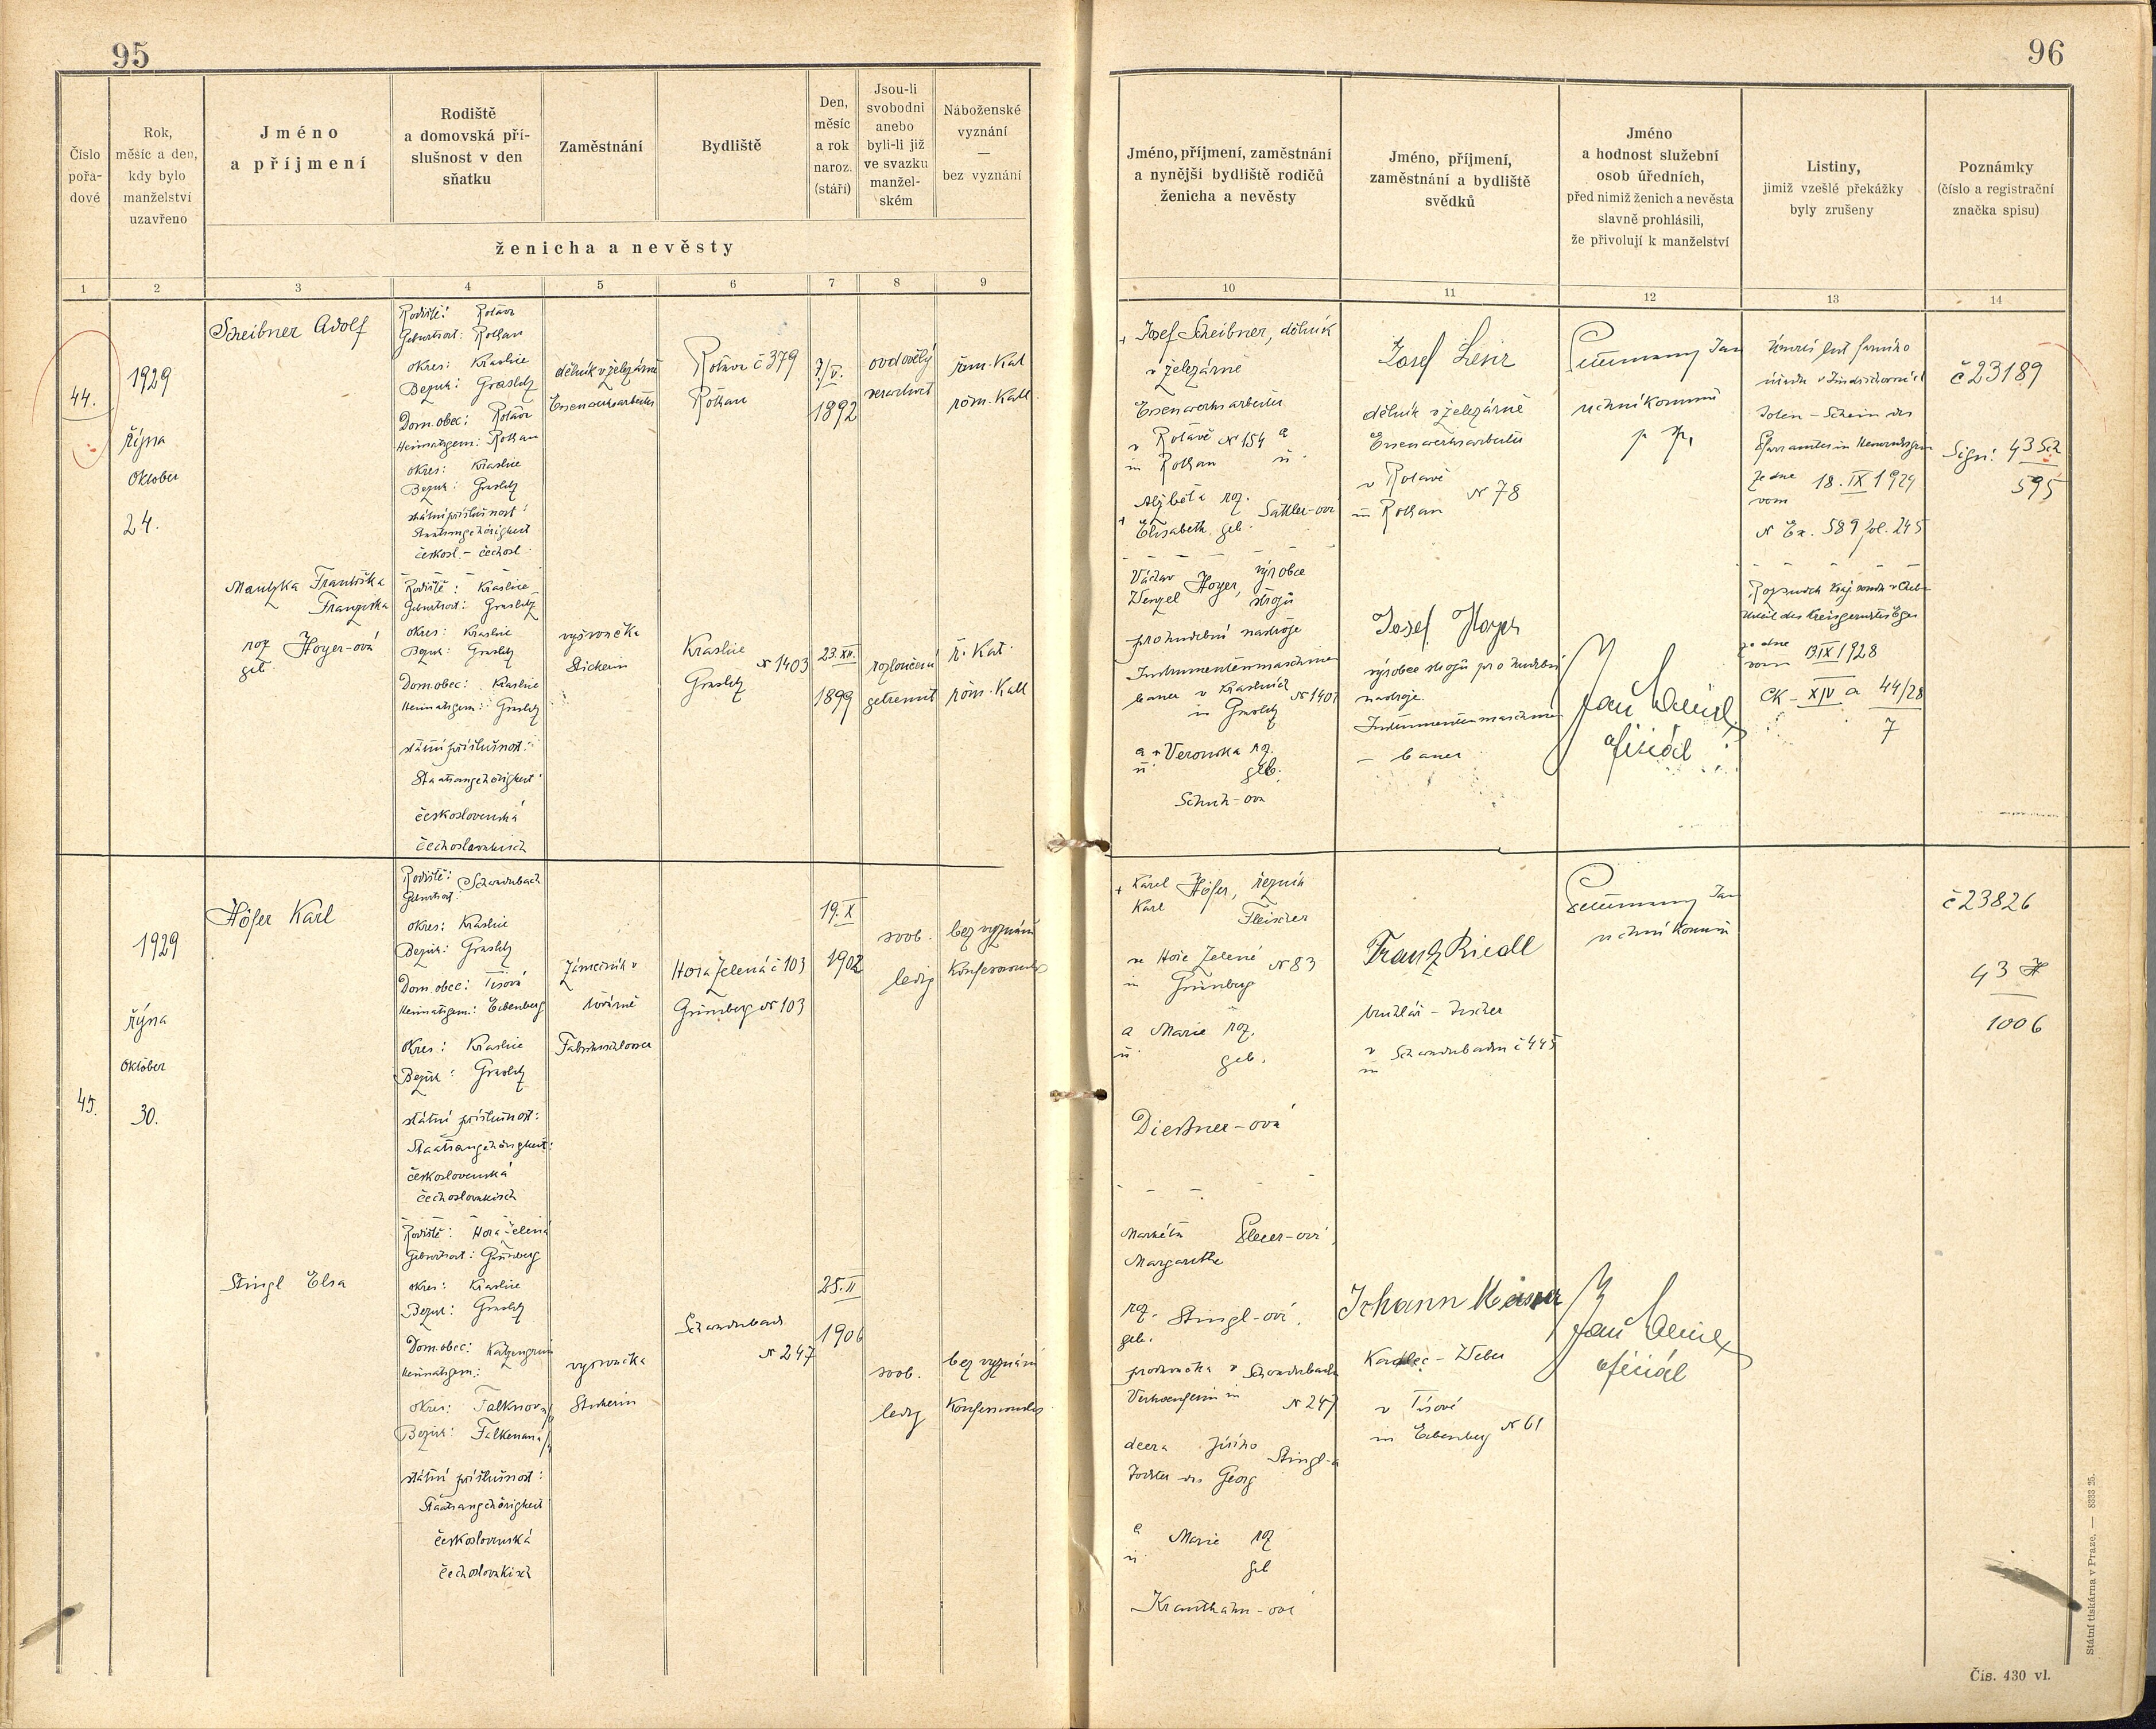 95
Číslo
pořa-
dové
Rok,
měsíc a den,
kdy bylo
manželství
uzavřeno
Jméno
a příjmení
Rodiště
a domovská pří-
slušnost v den
sňatku
Zaměstnání
Bydliště
Den,
měsíc
a rok
naroz.
(stáří)
Jsou-li
svobodni
anebo
byli-li již
ve svazku
manžel-
ském
Náboženské
vyznání
—
bez vyznání
ženicha a nevěsty
1
2
3
4
5
6
7
8
9
44.
1929
října
Oktober
24.
Scheibner Adolf
Rodiště: Rotava
Geburtsort: Rothau
okres: Kraslice
Bezirk: Graslitz
Dom. obec: Rotava
Heimatsgem.: Rothau
okres: Kraslice
Bezirk: Graslitz
státní příslušnost:
Staatsangehörigkeit
českosl. - čechosl.
dělník v železárně
Eisenwerksarbeiter
Rotava č 379
Rothau
7/V.
1892
ovdovělý
verwitwet
řím. Kat
röm. Kath
Mautzka Františka
Franziska
roz
geb. Hoyer-ová
Rodiště: Kraslice
Geburtsort: Graslitz
okres: Kraslice
Bezirk: Graslitz
Dom. obec: Kraslice
Heimatsgem.: Graslitz
státní příslušnost:
Staatsangehörigkeit:
československá
čechoslovakisch
vyšívačka
Stickerin
Kraslice
N 1403
Graslitz
23. XII.
1899
rozloučená
getrennt
ř. Kat.
röm. Kath
45.
1929
října
Oktober
30.
Höfer Karl
Rodiště: Schwaderbach
Geburtsort:
okres: Kraslice
Bezirk: Graslitz
Dom. obec: Tisová
Heimatsgem.: Eibenberg
Okres: Kraslice
Bezirk: Graslitz
státní příslušnost:
Staatsangehörigkeit:
československá
čechoslovakisch
Zámečník v
továrně
Fabriksschlosser
Hora Zelená č 103
Grünberg N 103
19. X
1902
svob.
ledig
bez vyznání
Konfessionslos
Stingl Elsa
Rodiště: Hora Zelená
Geburtsort: Grünberg
okres: Kraslice
Bezirk: Graslitz
Dom. obec:
Heimatsgem.:
Okres: Falknov
Bezirk: Falkenau
státní příslušnost:
Staatsangehörigkeit
československá
čechoslovakisch
vyšívačka
Stickerin
Schwaderbach
N 247
25. II
1906
svob.
ledig
bez vyznání
Konfessionslos
96
Jméno, příjmení, zaměstnání
a nynější bydliště rodičů
ženicha a nevěsty
Jméno, příjmení,
zaměstnání a bydliště
svědků
Jméno
a hodnost služební
osob úředních,
před nimiž ženich a nevěsta
slavně prohlásili,
že přivolují k manželství
Listiny,
jimiž vzešlé překážky
byly zrušeny
Poznámky
(číslo a registrační
značka spisu)
10
11
12
13
14
+ Josef Scheibner, dělník
v železárně
Eisenwerksarbeiter
v Rotavě N 154 a
in Rothau u.
Alžběta roz.
+ Elisabeth geb. Sattler-ová
Václav
Wenzel Hoyer, výrobce
strojů
pro hudební nástroje
Instrumentenmaschinen
bauer v Kraslicích
in Graslitz N 1401
a + Veronika roz.
u. geb.
Schuh-ová
Josef
dělník v železárně
Eisenwerksarbeiter
v Rotavě
in Rothau N 78
Josef Hoyer
výrobce strojů pro hudební
nástroje
Instrumentenmaschinen
- bauer
Jan
oficiál
Toten-Schein des
Pfarramtes in
ze dne
vom 18. IX 1929
N Ex. 589 fol. 245
Urteil des Kreisgerichtes Eger
ze dne
vom 13 IX 1928
CK - XIV a 44/28
7
č 23189
Sign: 43 Sch
595
+ Karel
Karl Höfer, řezník
Fleischer
ve Hoře Zelené N 83
in Grünberg
a Marie roz.
u. geb.
-ová
Markéta
Margarethe
roz.
geb. Stingl-ová
prodavačka v Schwaderbach
Verkäuferin in N 247
dcera Jiřího
Tochter des Georg Stingl-a
a Marie roz
u. geb
-ová
Franz Riedl
truhlář - Tischler
v
in Schwaderbachu č 445
Johann
- Weber
v Tisové
in Eibenberg N 61
Jan
oficiál
č 23826
43 H
1006
Státní tiskárna v Praze. — 8333 25.
Čís. 430 vl.